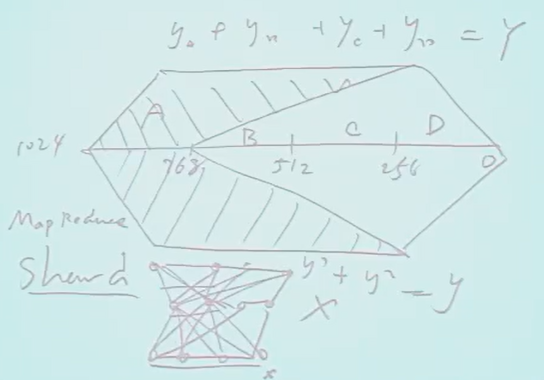 y₀ + yₙ + y_c + yₙ = Y
A
B C D
1024 768 512 256 0
MapReduce
y² + y² = y
X
x